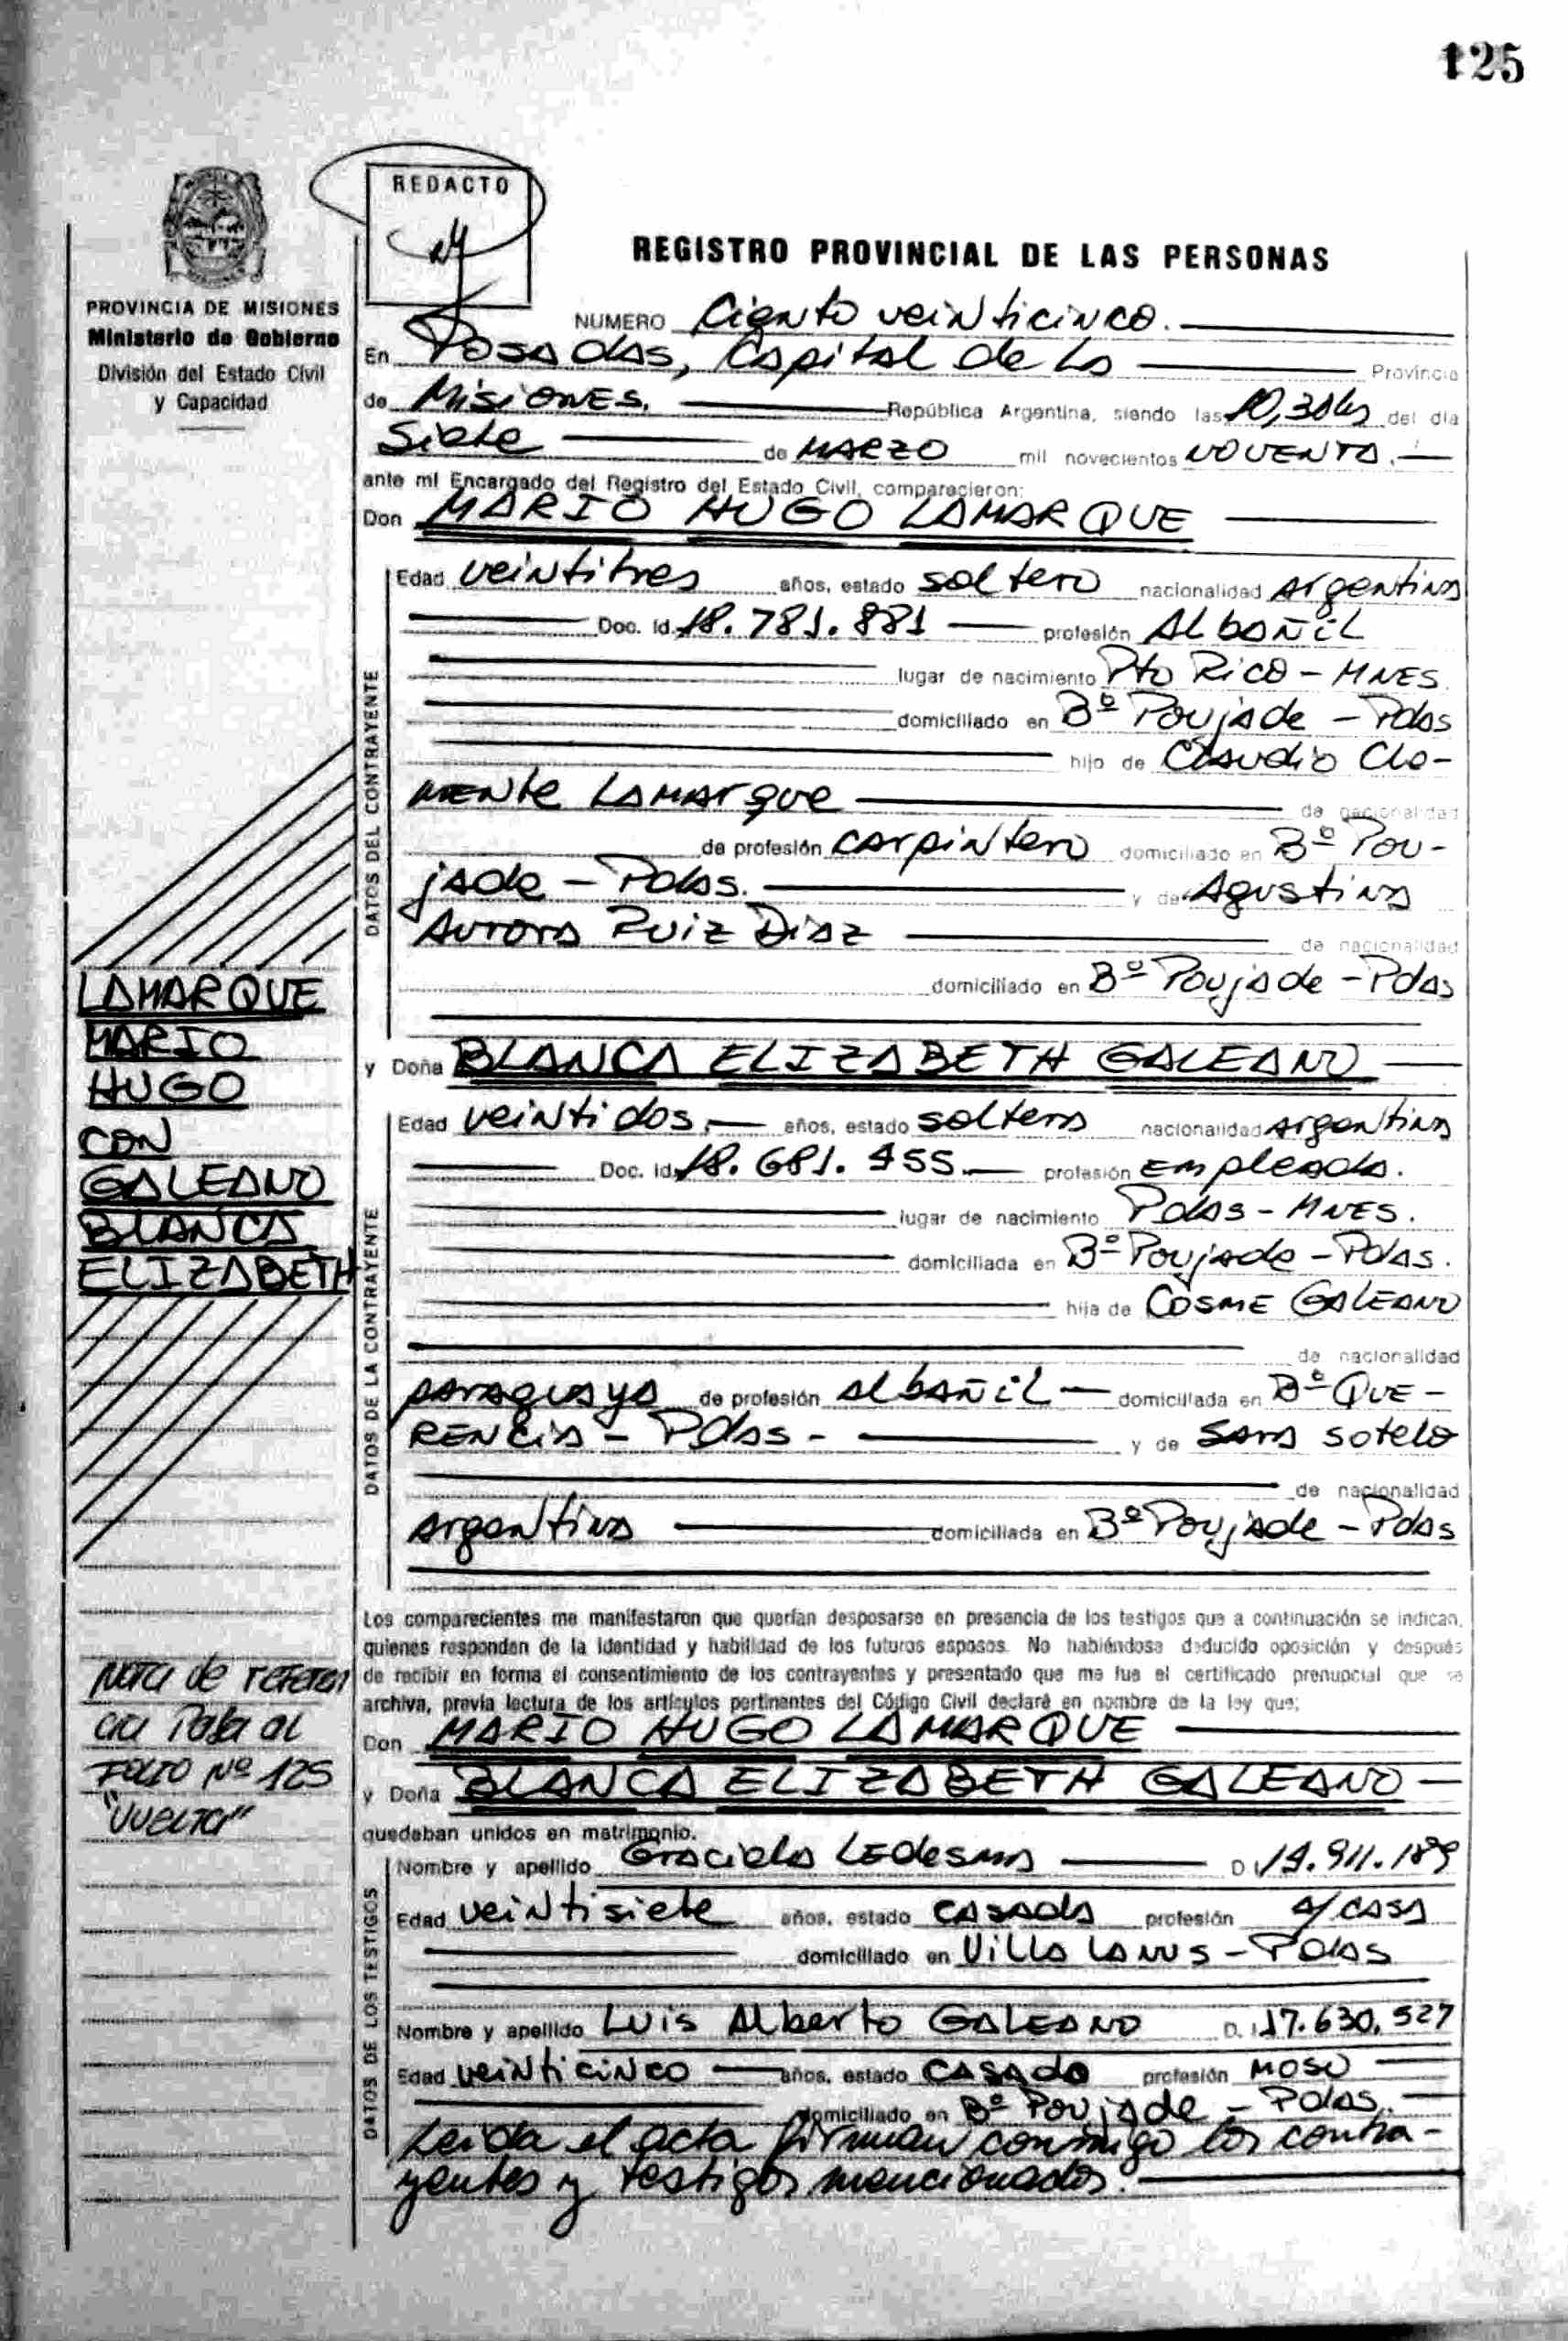 125
REDACTO
PROVINCIA DE MISIONES
Ministerio de Gobierno
División del Estado Civil
y Capacidad
REGISTRO PROVINCIAL DE LAS PERSONAS
NUMERO Ciento veinticinco.
En Posadas, Capital de La Provincia
de Misiones, República Argentina, siendo las 10,30hs del día
Siete de MARZO mil novecientos NOVENTA.
ante mí Encargado del Registro del Estado Civil, comparecieron:
Don MARIO HUGO LAMARQUE
DATOS DEL CONTRAYENTE
Edad veintitres años, estado soltero nacionalidad Argentina
Doc. Id. 18.781.881 profesión ALbañiL
lugar de nacimiento Pto Rico - MNES.
domiciliado en Bº Poujade - Pdas
hijo de Claudio Cle-
mente Lamarque de nacionalidad
de profesión carpintero domiciliado en Bº Pou-
jade - Pdas. y de Agustina
Aurora Ruiz Diaz de nacionalidad
domiciliado en Bº Poujade - Pdas
y Doña BLANCA ELIZABETH GALEANO
DATOS DE LA CONTRAYENTE
Edad veintidos, años, estado soltera nacionalidad argentina
Doc. Id. 18.681.955 profesión Empleada.
lugar de nacimiento Pdas - MNES.
domiciliada en Bº Poujade - Pdas.
hija de COSME GALEANO
de nacionalidad
paraguaya de profesión albañiL domiciliada en Bº QUE-
RENCIA - Pdas - y de SARA sotelo
de nacionalidad
argentina domiciliada en Bº Poujade - Pdas
LAMARQUE
MARIO
HUGO
CON
GALEANO
BLANCA
ELIZABETH
Los comparecientes me manifestaron que querían desposarse en presencia de los testigos que a continuación se indican,
quienes responden de la identidad y habilidad de los futuros esposos. No habiéndose deducido oposición y después
de recibir en forma el consentimiento de los contrayentes y presentado que me fue el certificado prenupcial que se
archiva, previa lectura de los artículos pertinentes del Código Civil declaré en nombre de la ley que:
Don MARIO HUGO LAMARQUE
y Doña BLANCA ELIZABETH GALEANO
quedaban unidos en matrimonio.
Nota de referen
cia Pasa al
FOLIO Nº 125
"VUELTA"
DATOS DE LOS TESTIGOS
Nombre y apellido Graciela Ledesma D.I. 14.911.189
Edad veintisiete años, estado CASADA profesión a/ casa
domiciliado en Villa Lanus - Pdas
Nombre y apellido Luis Alberto GALEANO D.I. 17.630.527
Edad veinticinco años, estado CASADO profesión MOSO
domiciliado en Bº Poujade - Pdas.
Leida el acta firman conmigo los contra-
yentes y testigos mencionados.